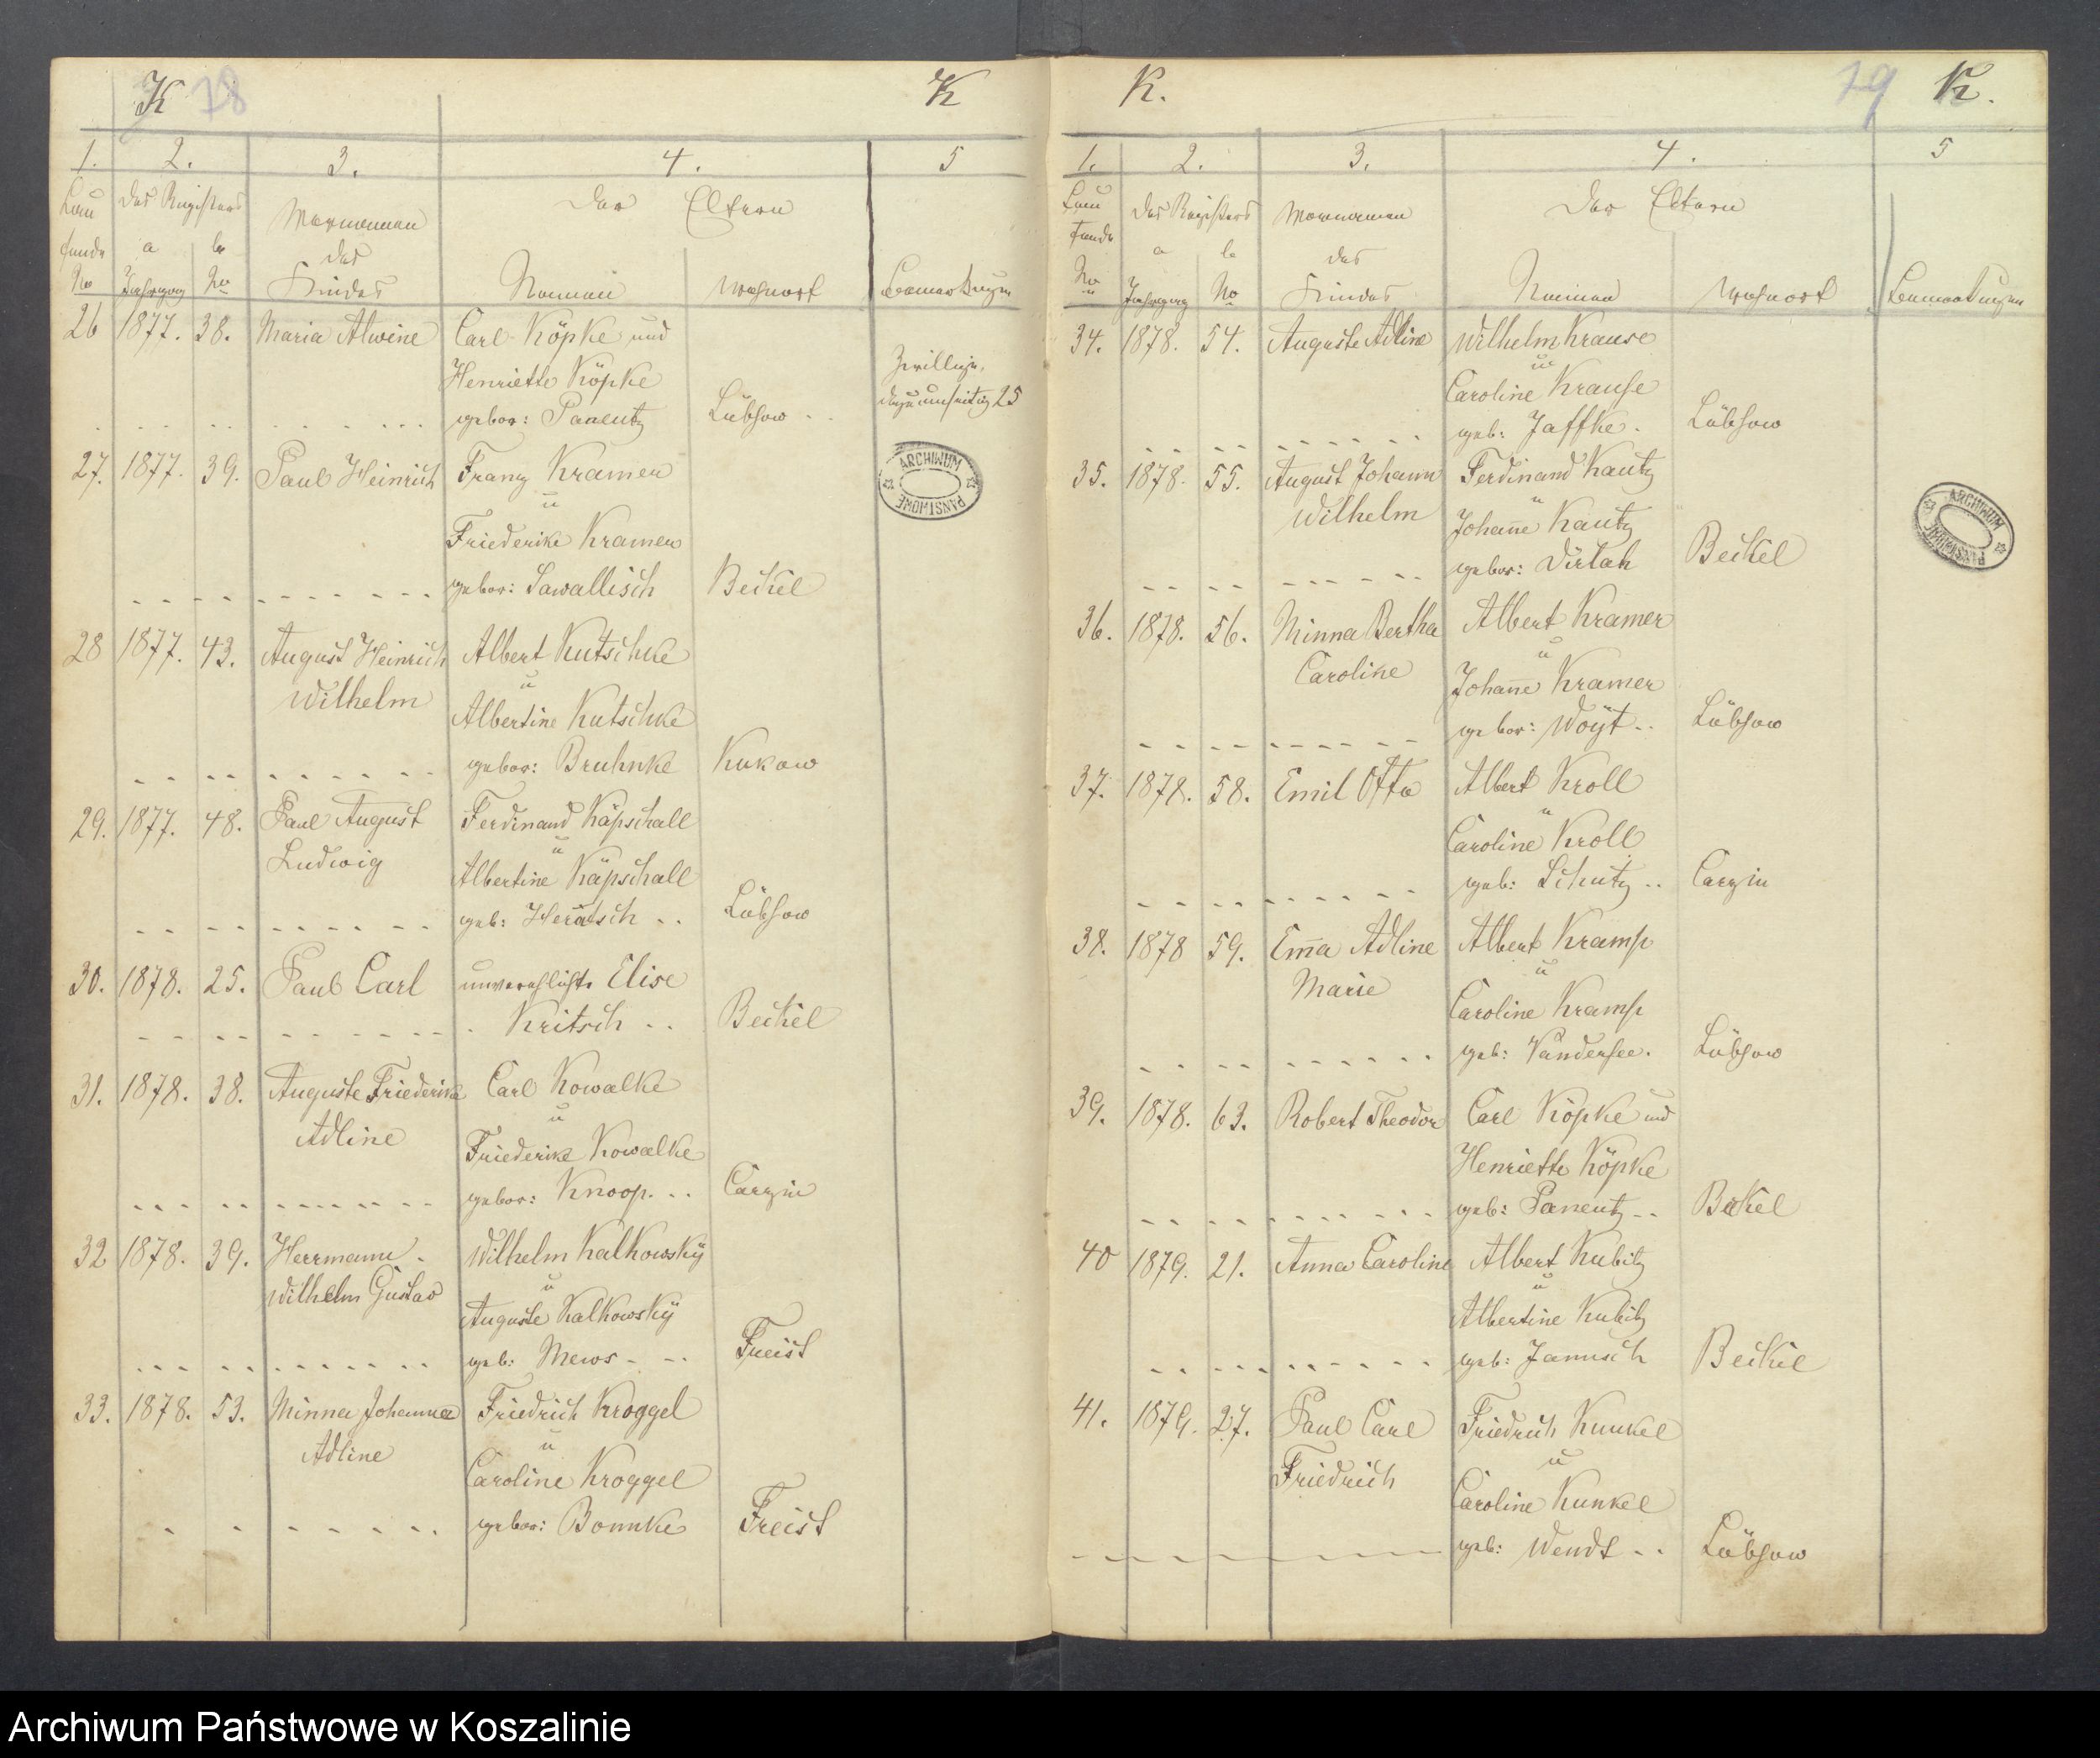 K 78 K
1. 2. 3. 4. 5
Lau des Registers Vornamen Der Eltern
fende a b des
No Jahrgang No Kindes Namen Wohnort Bemerkungen
26 1877. 38. Maria Alwine Carl Köpke und
Henriette Köpke Zwillinge,
gebor: Panentz Lübsow 25
27. 1877. 39. Paul Heinrich Franz Kramer
u
Friederike Kramer
gebor: Sawallisch Beckel
28 1877. 43. August Heinrich Albert Kutschke
u
Wilhelm Albertine Kutschke
gebor: Bruhnke Kukow
29. 1877. 48. Paul August Ferdinand Käpschall
u
Ludwig Albertine Käpschall
geb: Lübsow
30. 1878. 25. Paul Carl unverehlichte Elise
Kritsch Beckel
31. 1878. 38. Auguste Friederike Carl Kowalke
u
Adline Friederike Kowalke
gebor: Knoop. Carzin
32 1878. 39. Herrmann Wilhelm Kalkowsky
u
Wilhelm Gustav Auguste Kalkowsky
geb: Mews Freist
33. 1878. 53. Minna Johanna Friedrich Kroggel
u
Adline Caroline Kroggel
gebor: Bonnke Freist
ARCHIWUM
PAŃSTWOWE
K. 79 K.
1. 2. 3. 4. 5
Lau des Registers Vornamen Der Eltern
fende a b des
No Jahrgang No Kindes Namen Wohnort Bemerkungen
34. 1878. 54. Auguste Adline Wilhelm Krause
u
Caroline Krause
geb: Jaffke. Lübsow
35. 1878. 55. August Johann Ferdinand Kautz
u
Wilhelm Johanne Kautz
gebor: Beckel
36. 1878. 56. Minna Bertha Albert Kramer
u
Caroline Johanne Kramer
gebor: Woyt Lübsow
37. 1878. 58. Emil Otto Albert Kroll
u
Caroline Kroll
geb: Schutz Carzin
38. 1878 59. Emma Adline Albert Kramp
u
Marie Caroline Kramp
geb: Vandersee. Lübsow
39. 1878. 63. Robert Theodor Carl Köpke und
Henriette Köpke
geb: Panentz Bekel
40 1879. 21. Anna Caroline Albert Kubitz
u
Albertine Kubitz
geb: Janusch Beckel
41. 1879. 27. Paul Carl Friedrich Kunkel
u
Friedrich Caroline Kunkel
geb: Wendt Lübsow
ARCHIWUM
PAŃSTWOWE
Archiwum Państwowe w Koszalinie